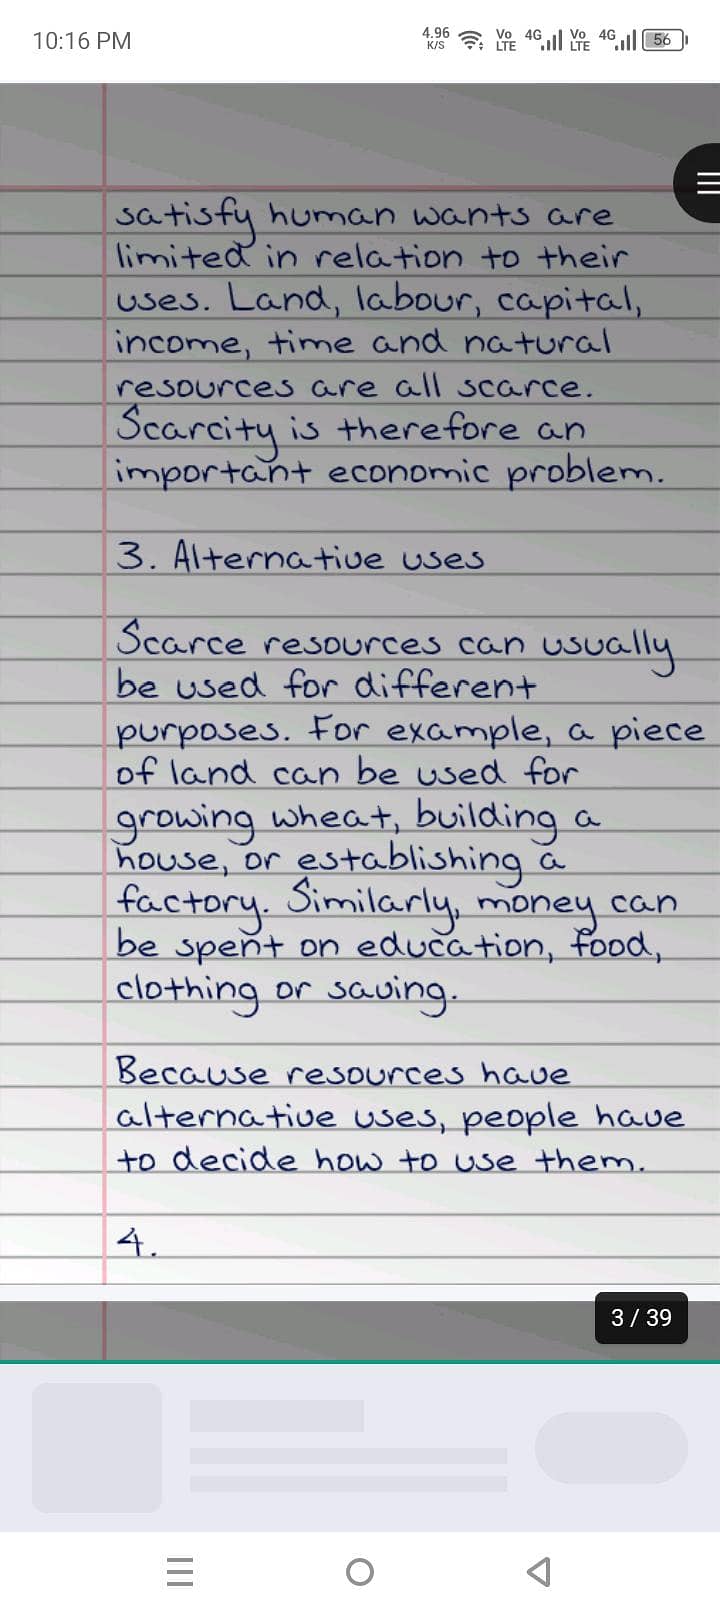 10:16 PM
4.96 K/S Vo LTE 4G Vo LTE 4G 56
satisfy human wants are
limited in relation to their
uses. Land, labour, capital,
income, time and natural
resources are all scarce.
Scarcity is therefore an
important economic problem.
3. Alternative uses
Scarce resources can usually
be used for different
purposes. For example, a piece
of land can be used for
growing wheat, building a
house, or establishing a
factory. Similarly, money can
be spent on education, food,
clothing or saving.
Because resources have
alternative uses, people have
to decide how to use them.
4.
3 / 39